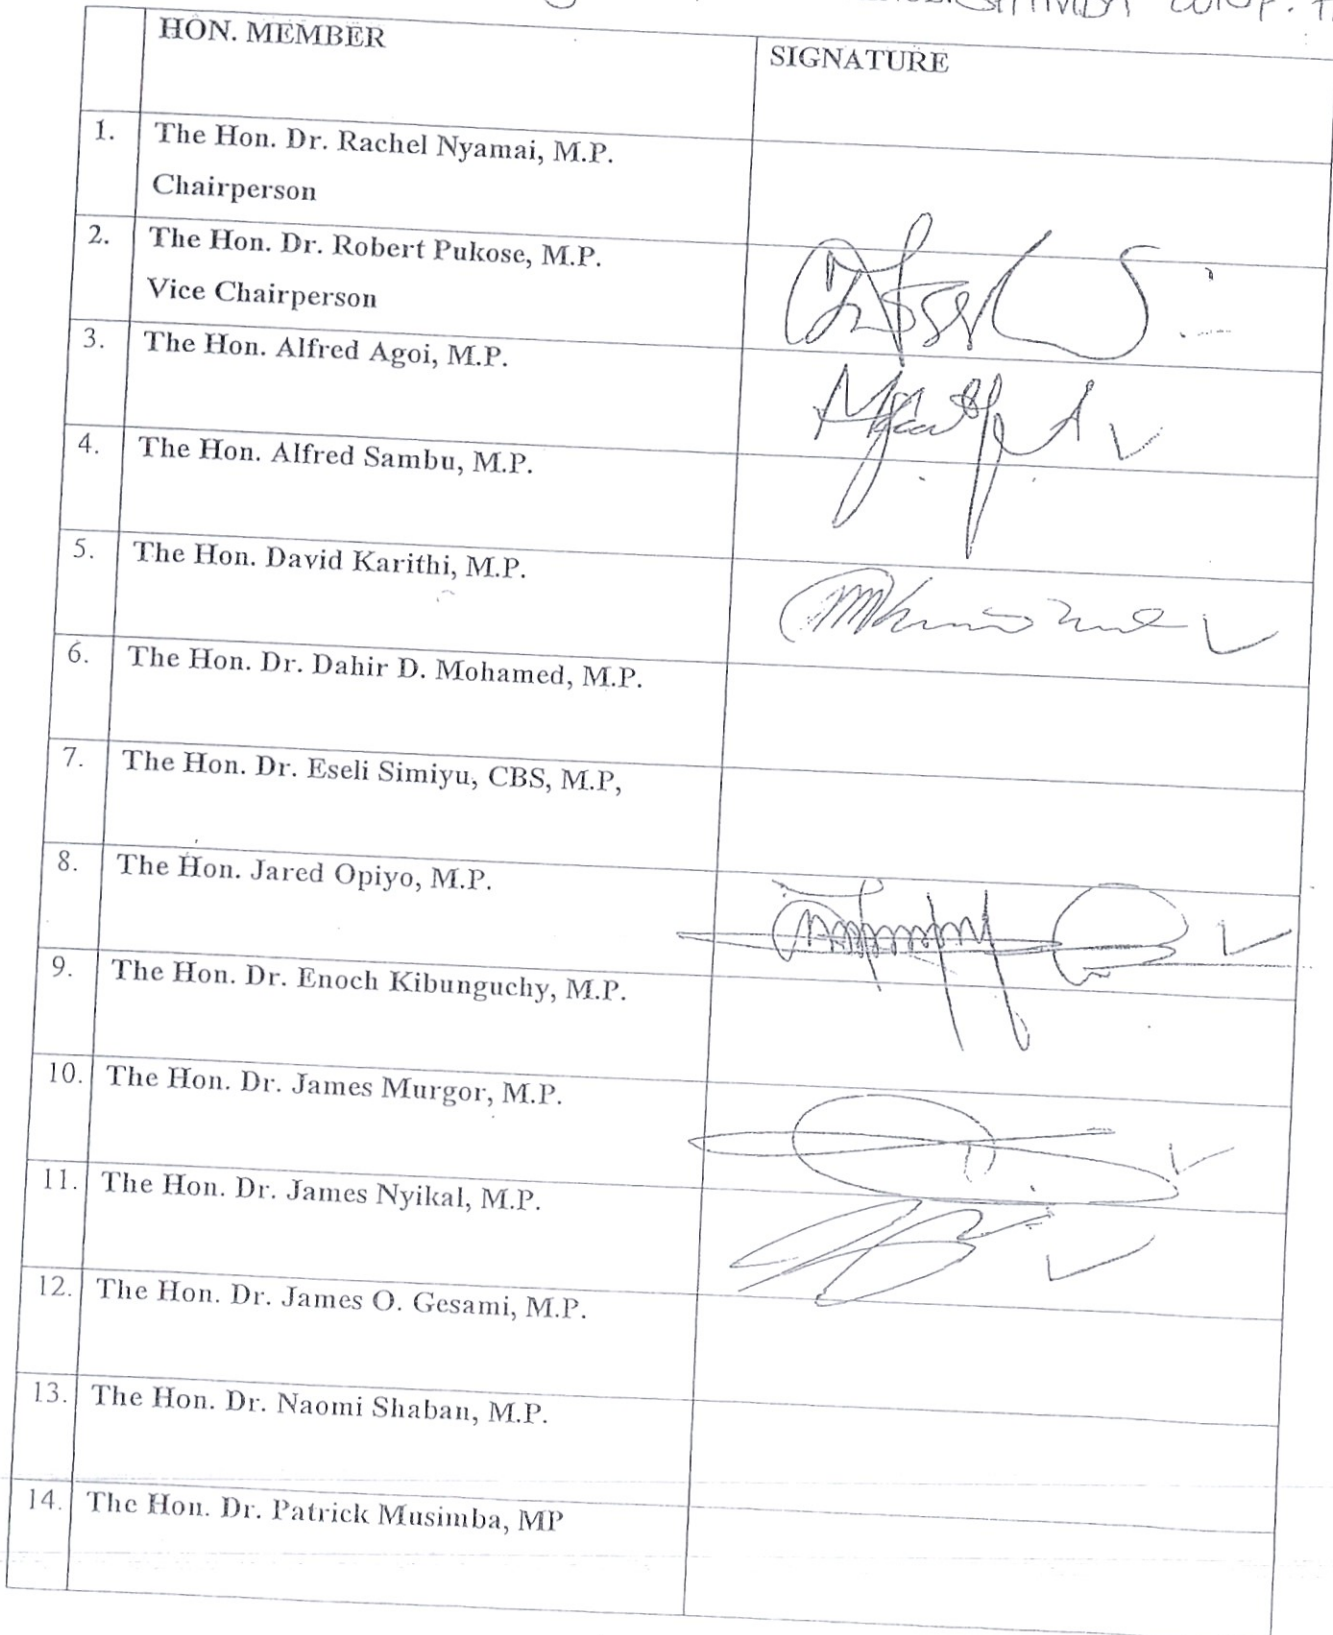 HON. MEMBER
SIGNATURE
1. The Hon. Dr. Rachel Nyamai, M.P.
Chairperson
2. The Hon. Dr. Robert Pukose, M.P.
Vice Chairperson
3. The Hon. Alfred Agoi, M.P.
4. The Hon. Alfred Sambu, M.P.
5. The Hon. David Karithi, M.P.
6. The Hon. Dr. Dahir D. Mohamed, M.P.
7. The Hon. Dr. Eseli Simiyu, CBS, M.P,
8. The Hon. Jared Opiyo, M.P.
9. The Hon. Dr. Enoch Kibunguchy, M.P.
10. The Hon. Dr. James Murgor, M.P.
11. The Hon. Dr. James Nyikal, M.P.
12. The Hon. Dr. James O. Gesami, M.P.
13. The Hon. Dr. Naomi Shaban, M.P.
14. The Hon. Dr. Patrick Musimba, MP